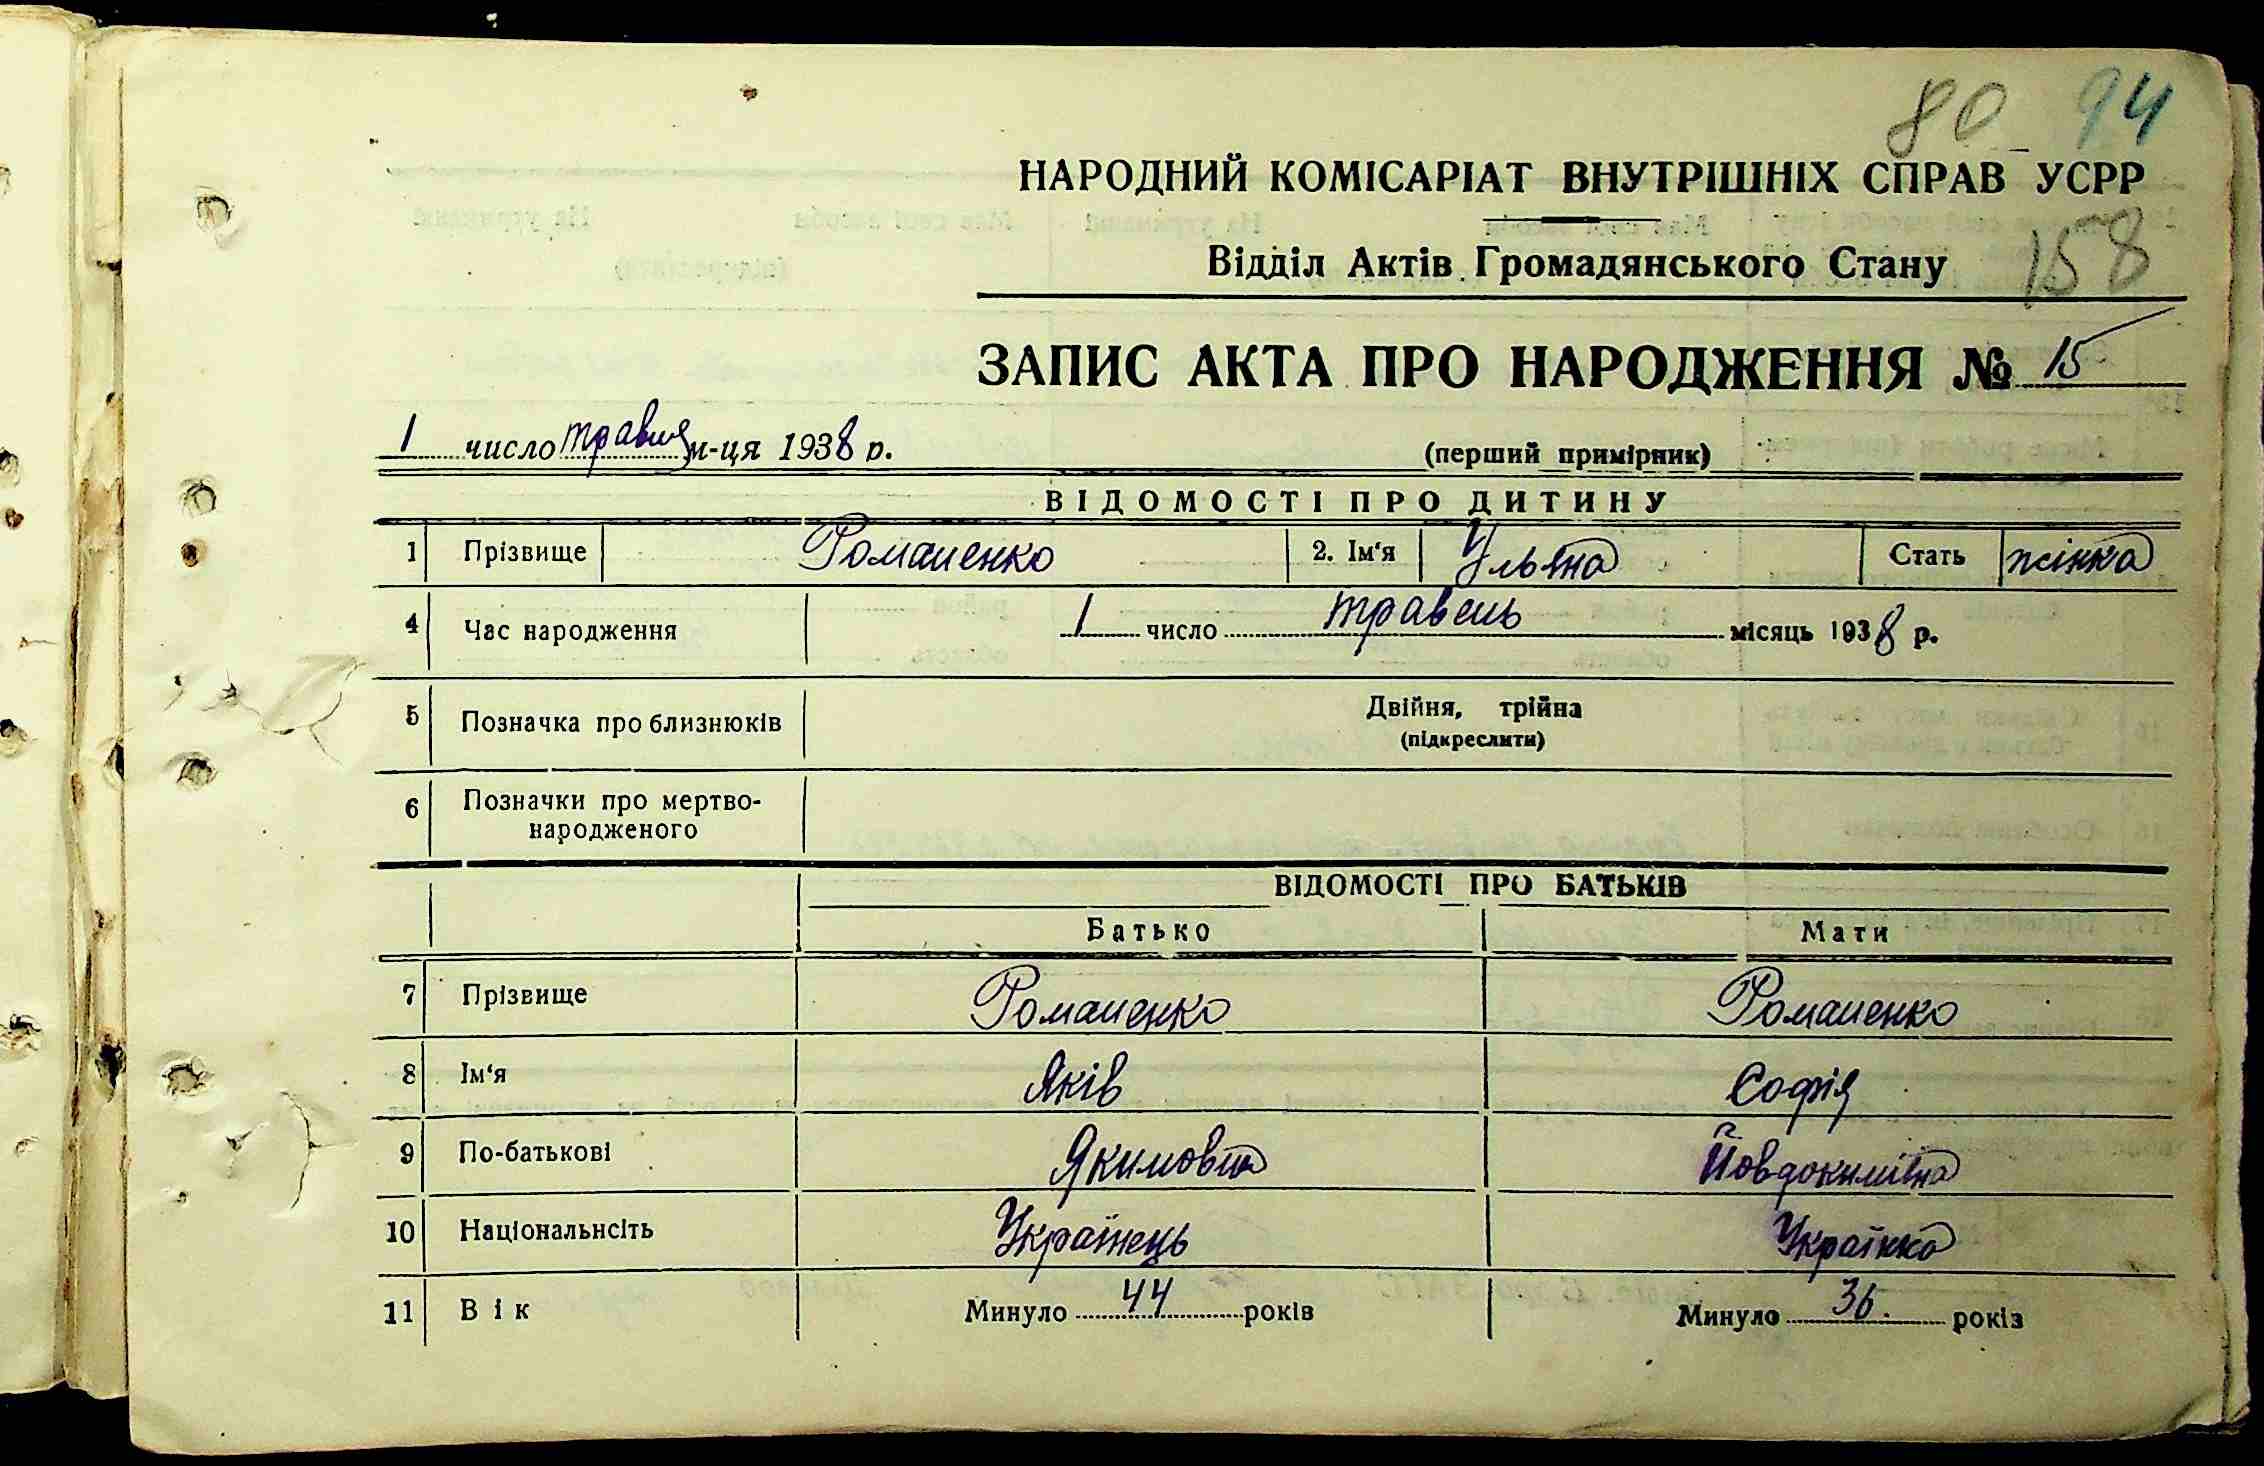 80 94
НАРОДНИЙ КОМІСАРІАТ ВНУТРІШНІХ СПРАВ УСРР
Відділ Актів Громадянського Стану 158
ЗАПИС АКТА ПРО НАРОДЖЕННЯ № 15
1 число травня м-ця 1938 р. (перший примірник)
ВІДОМОСТІ ПРО ДИТИНУ
1 Прізвище Романенко 2. Ім'я Ульяна Стать жінка
4 Час народження 1 число травень місяць 1938 р.
5 Позначка про близнюків Двійня, трійна
(підкреслити)
6 Позначки про мертво-
народженого
ВІДОМОСТІ ПРО БАТЬКІВ
Батько Мати
7 Прізвище Романенко Романенко
8 Ім'я Яків Софія
9 По-батькові Якимович Йовдокимівна
10 Національнсіть Українець Українка
11 Вік Минуло 44 років Минуло 36 років